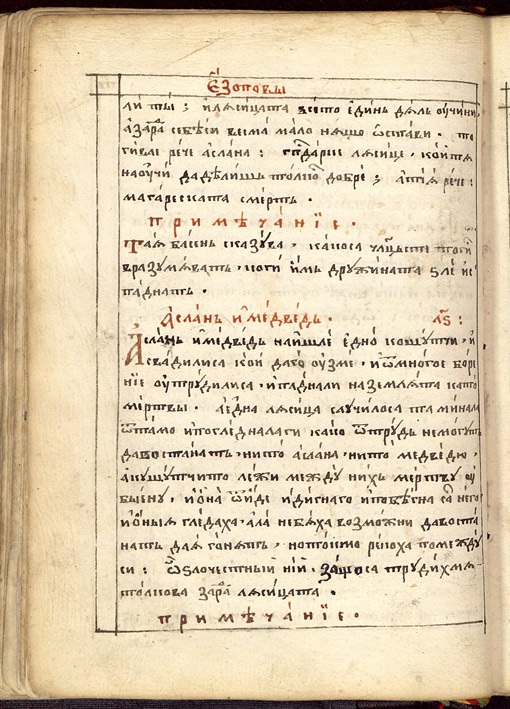 Е҆ЗОПОВЫ
ли ты ; и лꙗсицата всето единь дѧль оучини
а зара себѣси весма мало нѧщо ѡстави . то
гива рече аслана : гпⷭ҇дарие лѧсице , кой тѧ
научи да дѣлишь толко добре ; а тїѧ рече :
магареската смерть .
ПРИМѢЧАНЇЕ .
Таѧ басень сказува , какоса
вразумѧвать , коги имь дружината ѕле ис
паднать .
Аслань и медведь . л҃ѕ :
Аслань и медведь найшле едно кошутчи , и
сѧ свадилиса кой даго оузме , и ѿ многое боре
нїе оутрудилиса , и паднали на землѧта като
мертвы . а една лѧсица случилоса та минала
ѿ тамо и погледнала ги како ѿ трудь немогуть
давостанать , нито аслана , нито медведю ,
а кушутчито лежи между нихь мертву оу
быену , и ѡна ѿиде и дигнаго и побегна са него
и ѡныѧ гледаха , ала небѧха возможни давоста
нать даѧ гонѧть , но тогїю рекоха помежду
си : ѽ ѕлочестный нїй , защоса трудихмѧ
толкова зара лѧсицата .
ПРИМѢЧАНЇЕ .